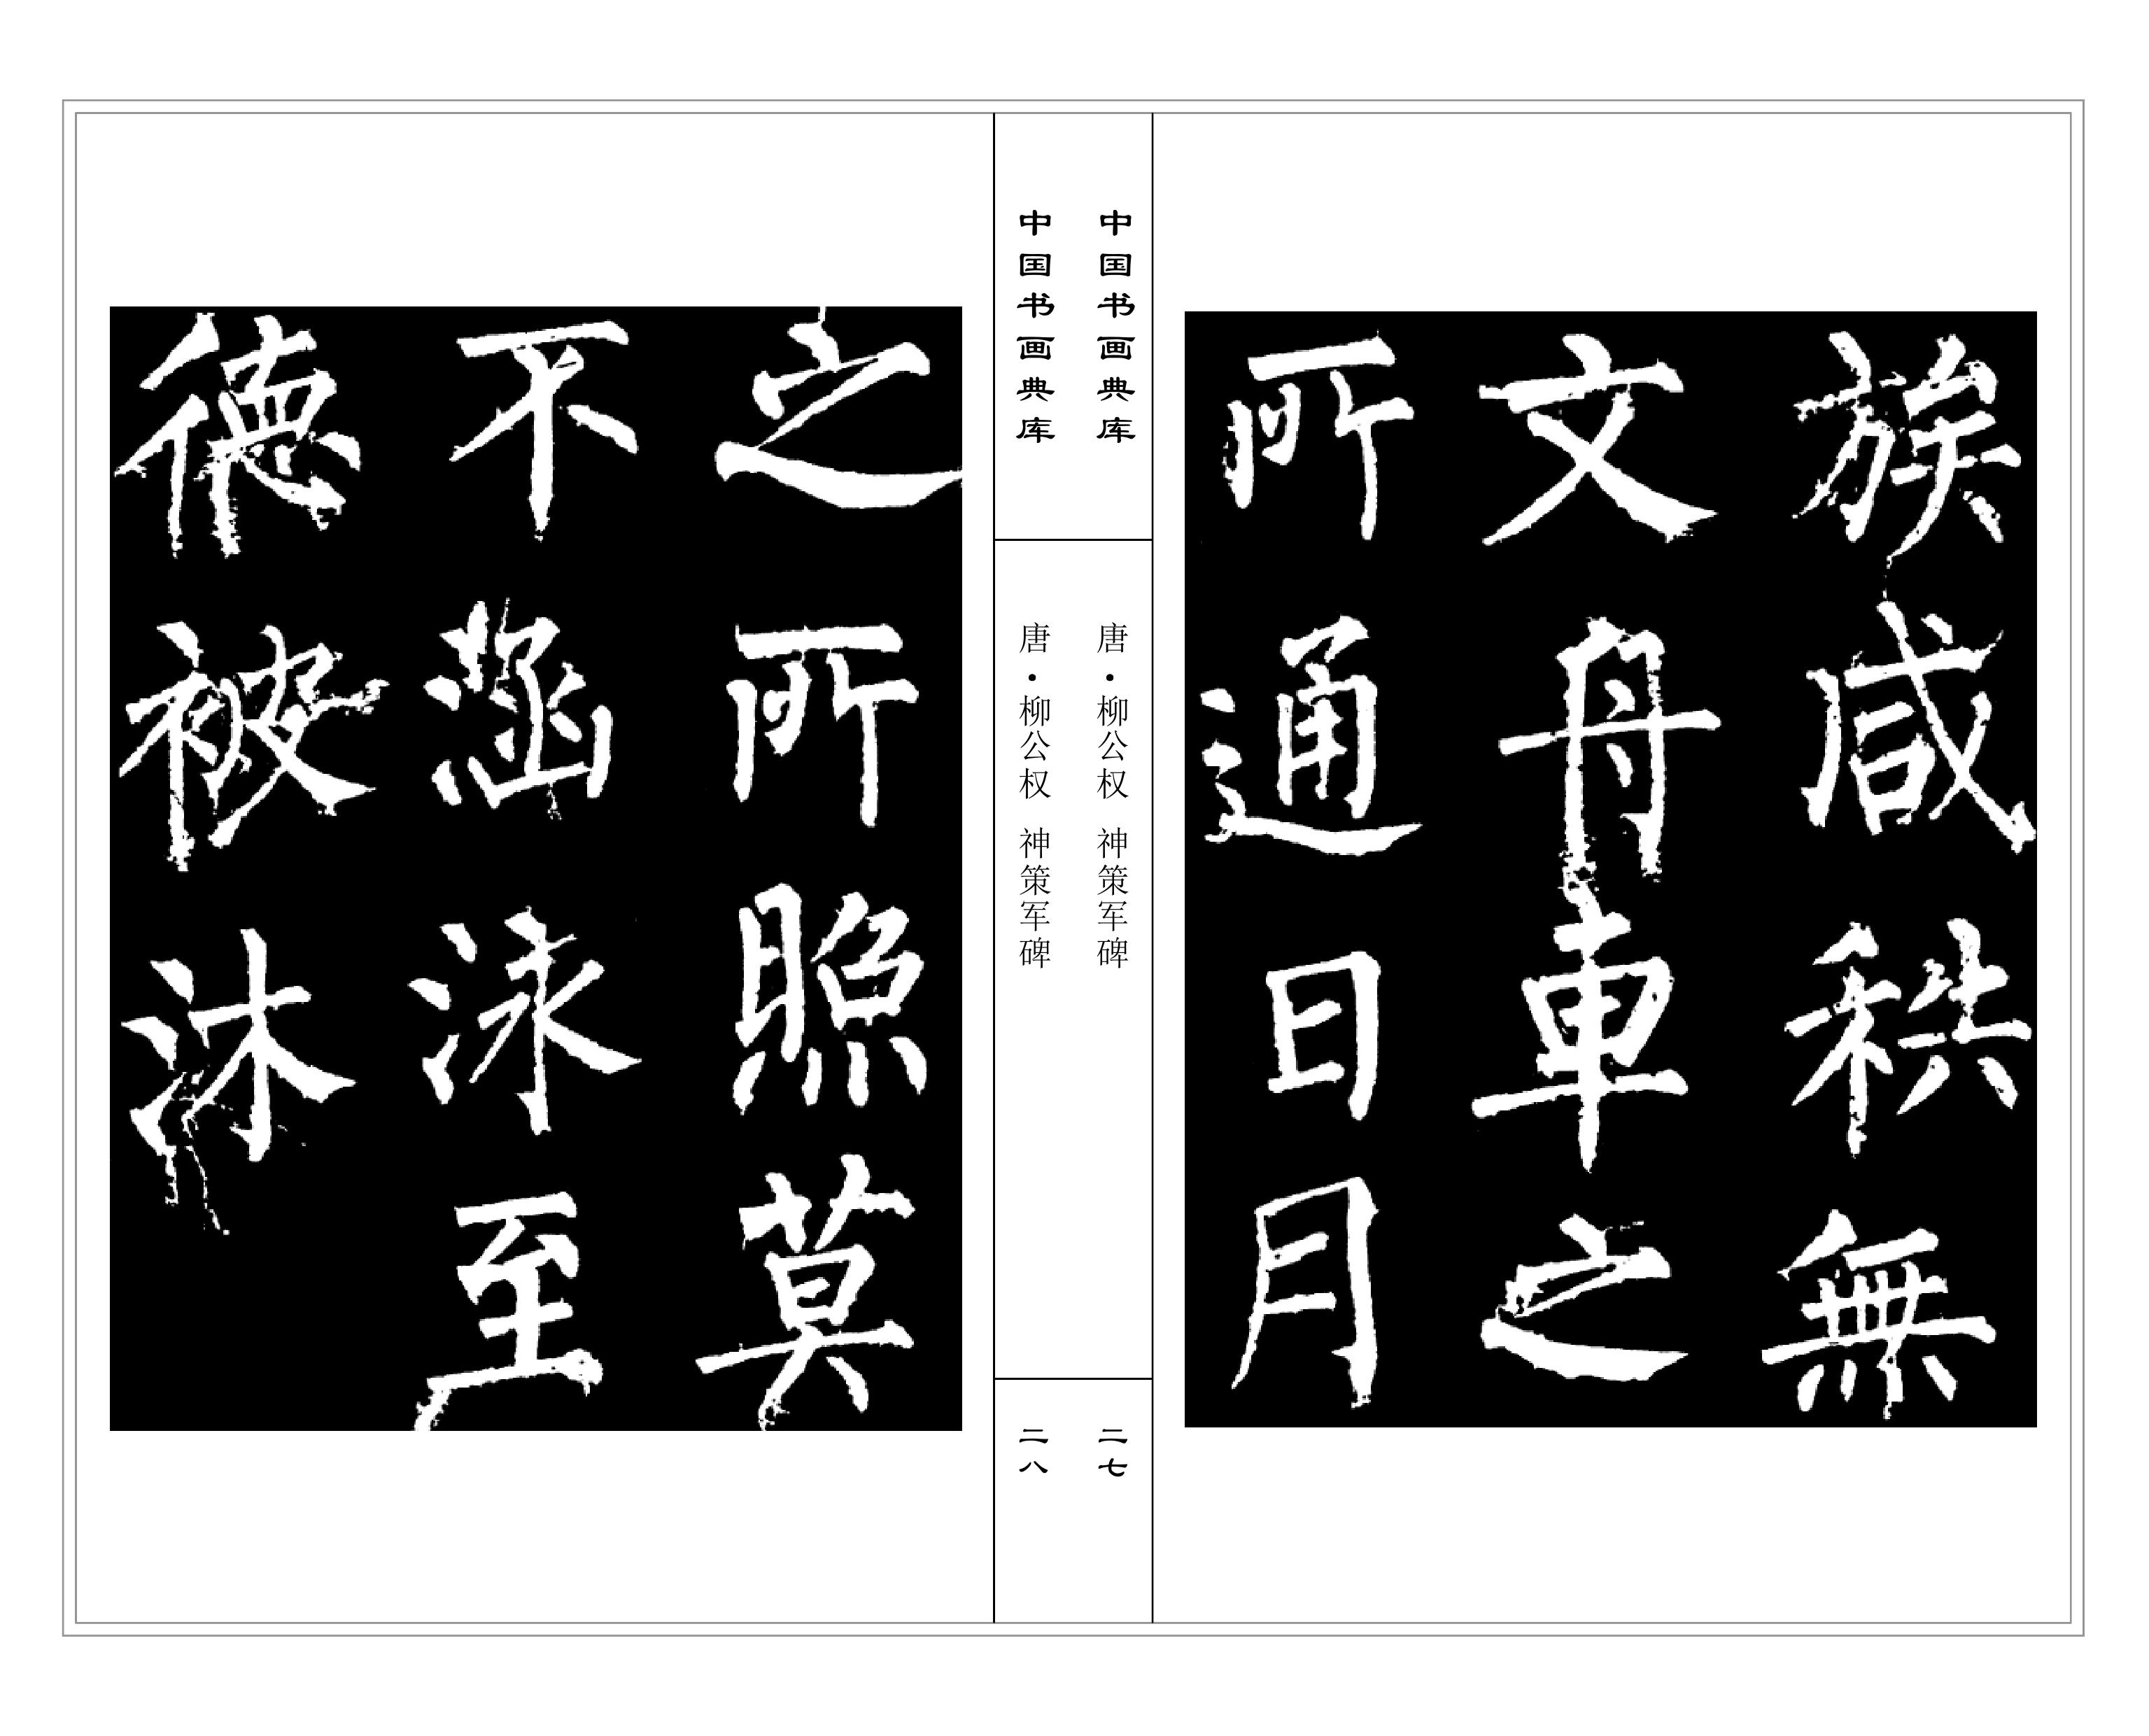 族咸秩無
文舟車之
所通日月
中国书画典库
唐·柳公权 神策军碑
二七
中国书画典库
唐·柳公权 神策军碑
二八
之所照莫
不涵泳至
德被沐